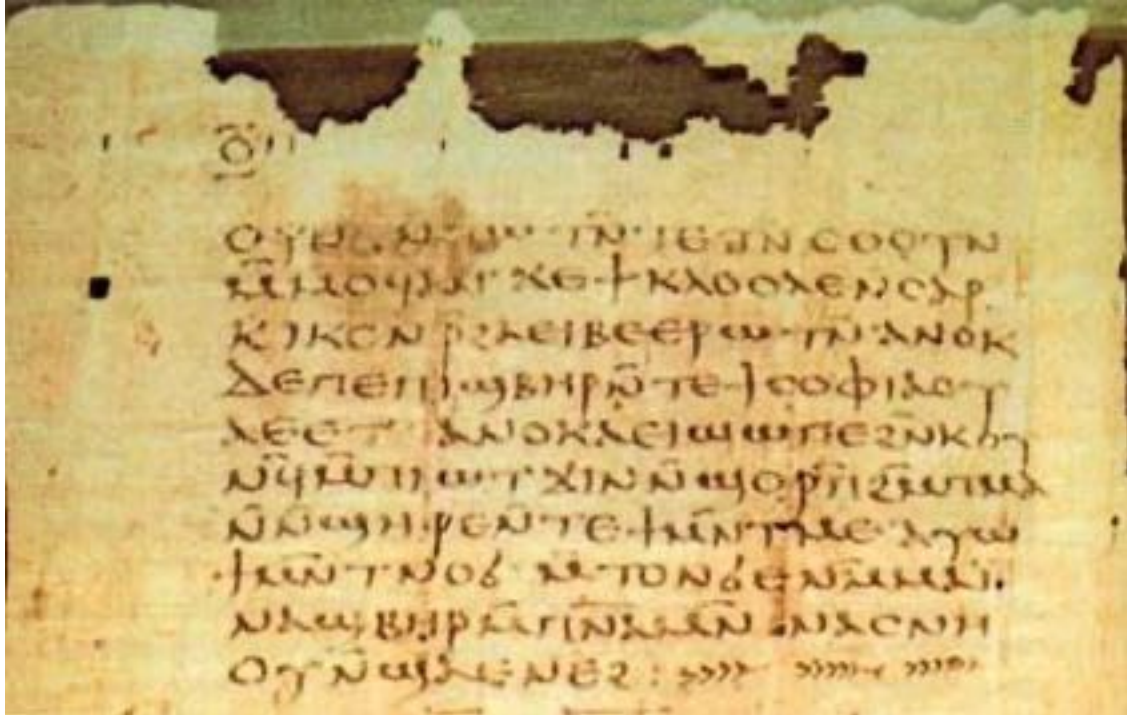 ⲥⲟⲟⲩⲛ
ⲙ̄ⲙⲟϥ ⲁⲛ ϫⲉ ϯⲕⲗⲟⲟⲗⲉ ⲛ̄ⲥⲁⲣ
ⲕⲓⲕⲟⲛ ⲣ̄ϩⲁⲉⲓⲃⲉ ⲉⲣⲱⲧⲛ̄ ⲁⲛⲟⲕ
ⲇⲉ ⲡⲉ ⲡⲓϣⲃⲏⲣ ⲛ̄ⲧⲉ ϯⲥⲟⲫⲓⲁ ⲟⲩ
ⲁⲉⲉⲧ ⲁⲛⲟⲕ ⲁⲉⲓϣⲱⲡⲉ ϩⲛ̄ ⲕⲟⲩ
ⲛ̄ϥ ⲙ̄ⲡⲓⲱⲧ ϫⲓⲛ ⲛ̄ϣⲟⲣⲡ̄ ϩⲙ̄ ⲡⲙⲁ
ⲛ̄ⲛ̄ϣⲏⲣⲉ ⲛ̄ⲧⲉ ϯⲙⲛ̄ⲧⲙⲉ ⲁⲩⲱ
ϯⲙⲛ̄ⲧⲛⲟϭ ⲙ̄ⲧⲟⲛ ϭⲉ ⲛ̄ⲙⲙⲁⲓ̈
ⲛⲁϣⲃⲏⲣ ⲙ̄ⲡⲛ̄ⲁ̄ ⲙⲛ̄ ⲛⲁⲥⲛⲏ
ⲟⲩ ⲛ̄ϣⲁ ⲉⲛⲉϩ :